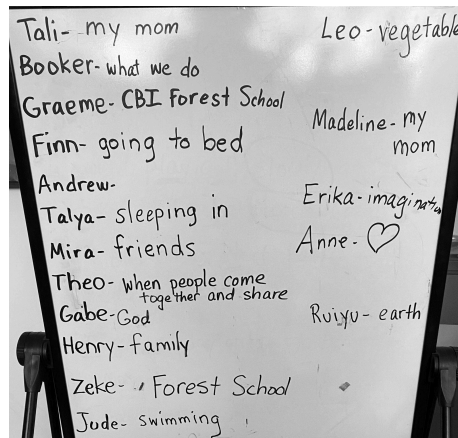 Tali- my mom
Booker- what we do
Graeme- CBI Forest School
Finn- going to bed
Andrew-
Talya- sleeping in
Mira- friends
Theo- when people come
together and share
Gabe- God
Henry- family
Zeke- Forest School
Jude- swimming
Leo- vegetable
Madeline- my
mom
Erika- imagination
Anne- ♡
Ruiyu- earth